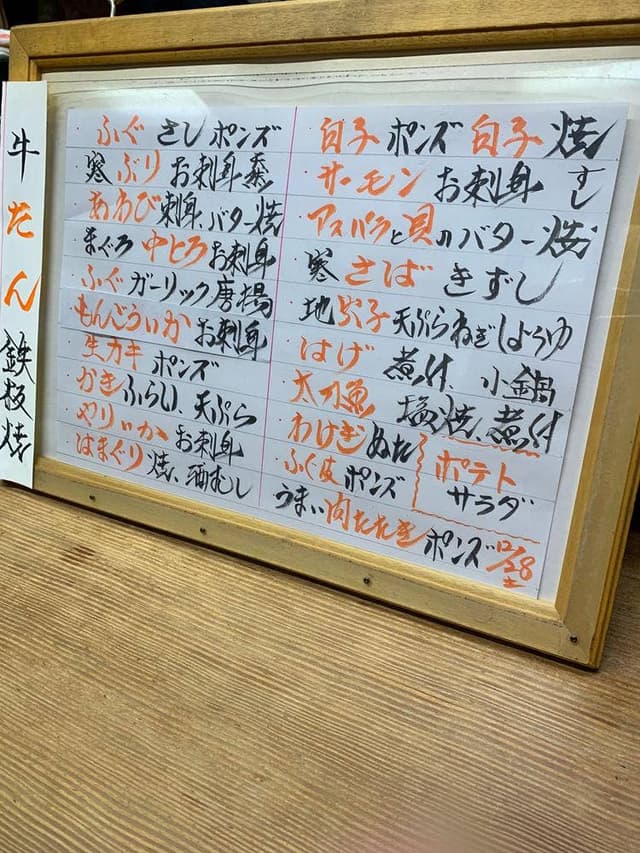 牛たん鉄板焼
・ふぐ さし ポンズ
寒 ぶり お刺身
・あわび 刺身、バター焼
まぐろ 中とろ お刺身
・ふぐ ガーリック 唐揚
・もんごういか お刺身
・生カキ ポンズ
・かき ふらい、天ぷら
・やりいか お刺身
・はまぐり 焼、酒むし
・白子 ポンズ 白子 焼
・サーモン お刺身 すし
・アスパラと貝のバター焼
・寒 さば きずし
・地 穴子 天ぷら ねぎしょうゆ
・はげ 煮付、小鍋
・太刀魚 塩焼、煮付
・わけぎ ぬた
・ふぐ皮 ポンズ
ポテト
サラダ
うまい 肉たたき ポンズ
12/28
土